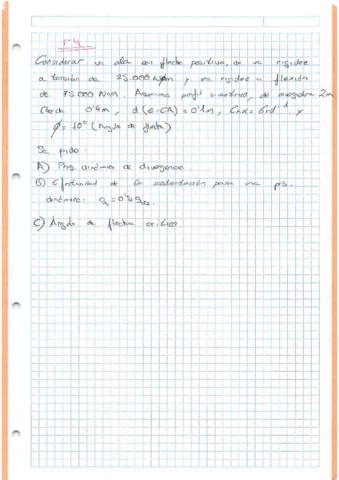 P4
Considerar un ala con flecha positiva, con una rigidez
a torsión de 25.000 Nm y una rigidez a flexión
de 75000 Nm. Asumimos perfil simétrico, de envergadura 2m
Cuerda 0'4m, d(e-CA) = 0'1m, CLα = 6rd⁻¹ y
ϕ = 10° (Ángulo de flecha)
Se pide:
A) Pres. dinámica de divergencia
B) Efectividad de la sustentación para una pres.
dinámica: q = qD.
C) Ángulo de flecha crítico